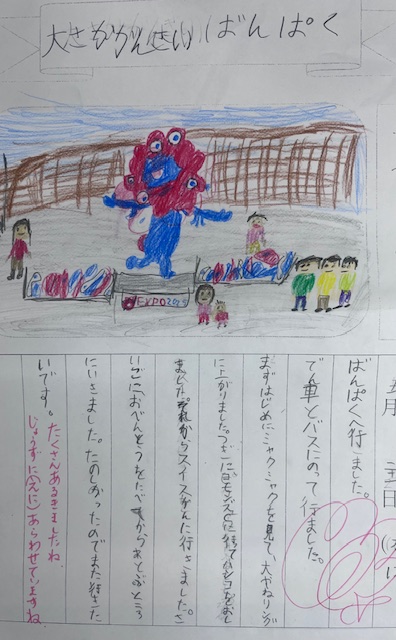 大さかかんさいばんぱく
EXPO2025
五月
三日
ばんぱくへ行きました。
でん車とバスにのって行きました。
まずはじめにミャクミャクを見て、大やねリング
に上がりました。つぎに
ました。それからスイスかんに行きました。さ
いごに、おべんとうをたべてからあそぶところ
にいきました。たのしかったのでまた行きた
いです。
たくさんあるきましたね。
じょうずに(えに)あらわせていますね